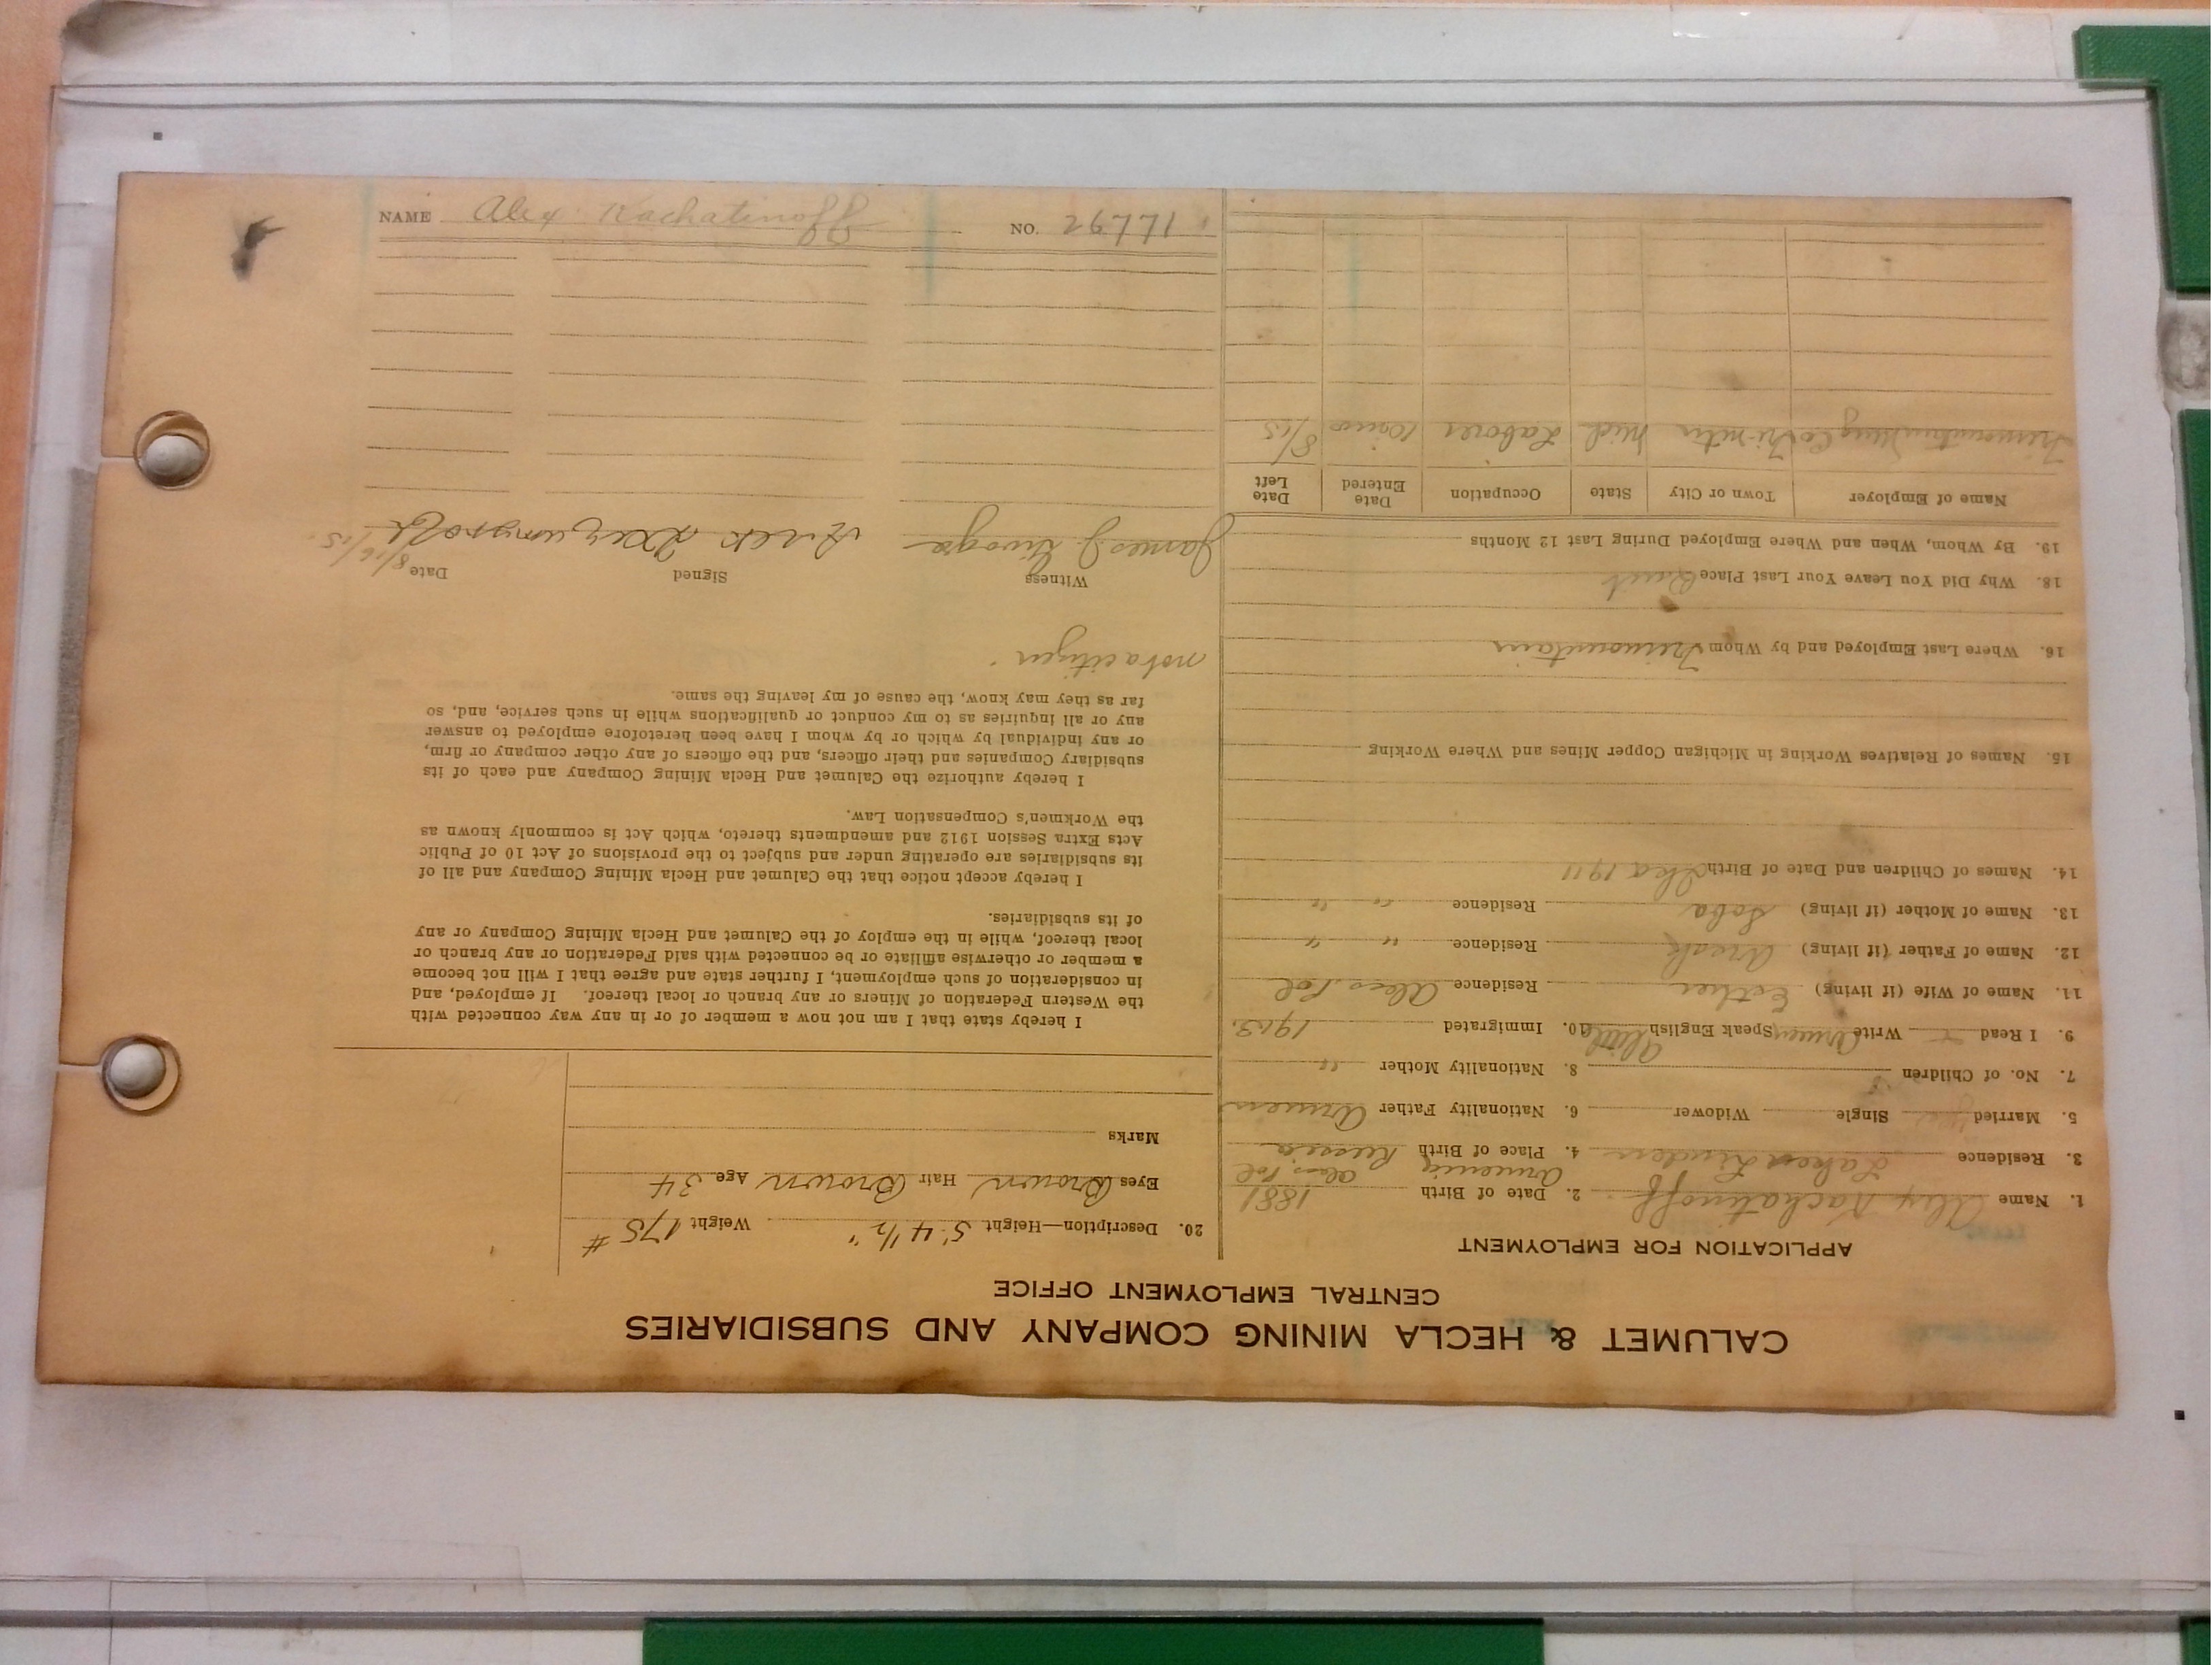 CALUMET & HECLA MINING COMPANY AND SUBSIDIARIES
CENTRAL EMPLOYMENT OFFICE
APPLICATION FOR EMPLOYMENT
1. Name Alex Kachatinoff 2. Date of Birth 1881
3. Residence Lake Linden 4. Place of Birth Armenia Russia
5. Married yes Single Widower 6. Nationality Father Armen
7. No. of Children 8. Nationality Mother "
9. I Read Write Armen Speak English 10. Immigrated 1913.
11. Name of Wife (if living) Esther Residence Alexs Pol
12. Name of Father (if living) Residence " "
13. Name of Mother (if living) Soba Residence " "
14. Names of Children and Date of Birth 1911
15. Names of Relatives Working in Michigan Copper Mines and Where Working
16. Where Last Employed and by Whom Trimountain
18. Why Did You Leave Your Last Place Quit
19. By Whom, When and Where Employed During Last 12 Months
Name of Employer Town or City State Occupation Date Entered Date Left
Trimountain Mng Co Tri-mtn Mich Laborer 8/15
20. Description—Height 5' 4 1/2" Weight 175 #
Eyes Brown Hair Brown Age 34
Marks
I hereby state that I am not now a member of or in any way connected with
the Western Federation of Miners or any branch or local thereof. If employed, and
in consideration of such employment, I further state and agree that I will not become
a member or otherwise affiliate or be connected with said Federation or any branch or
local thereof, while in the employ of the Calumet and Hecla Mining Company or any
of its subsidiaries.
I hereby accept notice that the Calumet and Hecla Mining Company and all of
its subsidiaries are operating under and subject to the provisions of Act 10 of Public
Acts Extra Session 1912 and amendments thereto, which Act is commonly known as
the Workmen's Compensation Law.
I hereby authorize the Calumet and Hecla Mining Company and each of its
subsidiary Companies and their officers, and the officers of any other company or firm,
or any individual by which or by whom I have been heretofore employed to answer
any or all inquiries as to my conduct or qualifications while in such service, and, so
far as they may know, the cause of my leaving the same.
not a citizen.
Witness Signed Date
James J. 8/16/15.
NAME Alex Kachatinoff NO. 26771